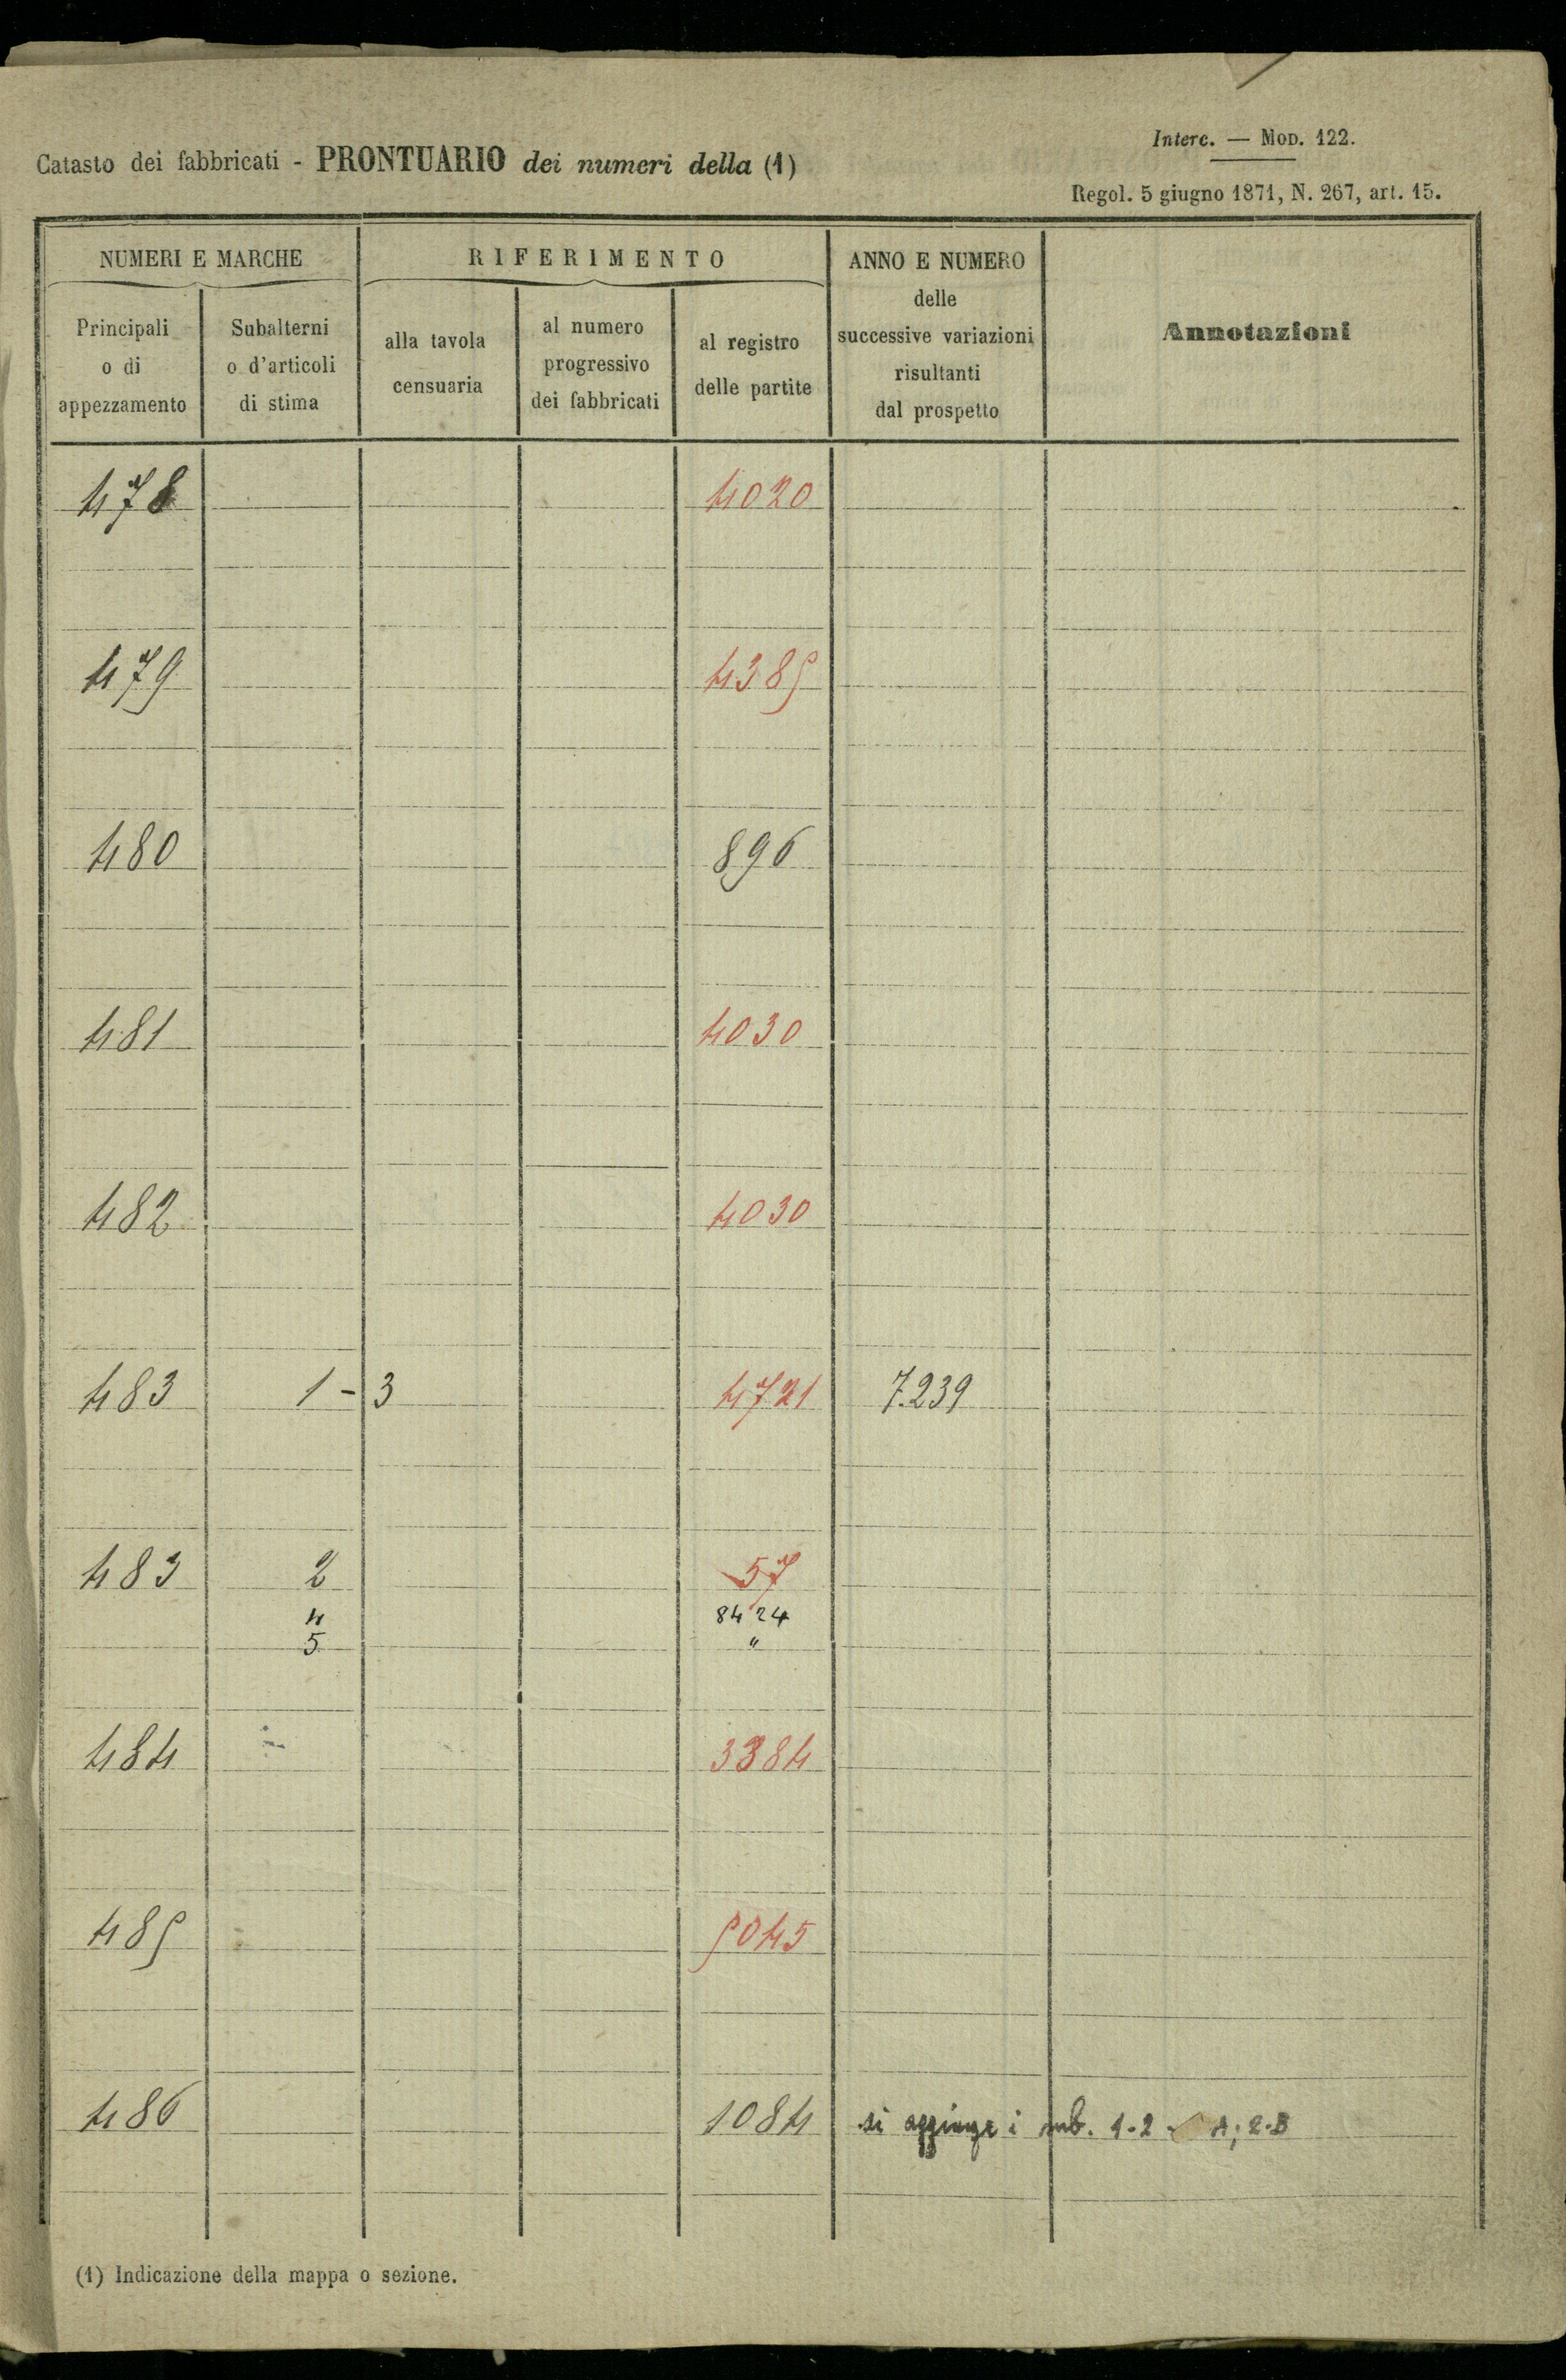 Interc. — Mod. 122.
Catasto dei fabbricati - PRONTUARIO dei numeri della (1)
Regol. 5 giugno 1871, N. 267, art. 15.
NUMERI E MARCHE
RIFERIMENTO
ANNO E NUMERO
delle
successive variazioni
risultanti
dal prospetto
Annotazioni
Principali
o di
appezzamento
Subalterni
o d'articoli
di stima
alla tavola
censuaria
al numero
progressivo
dei fabbricati
al registro
delle partite
478 4020
479 4385
480 896
481 4030
482 4030
483 1 - 3 4721 7.239
483 2 57
4 8424
5 "
484 3384
485 5045
486 1084 si aggiunge i sub. 1-2 A; 2-B
(1) Indicazione della mappa o sezione.